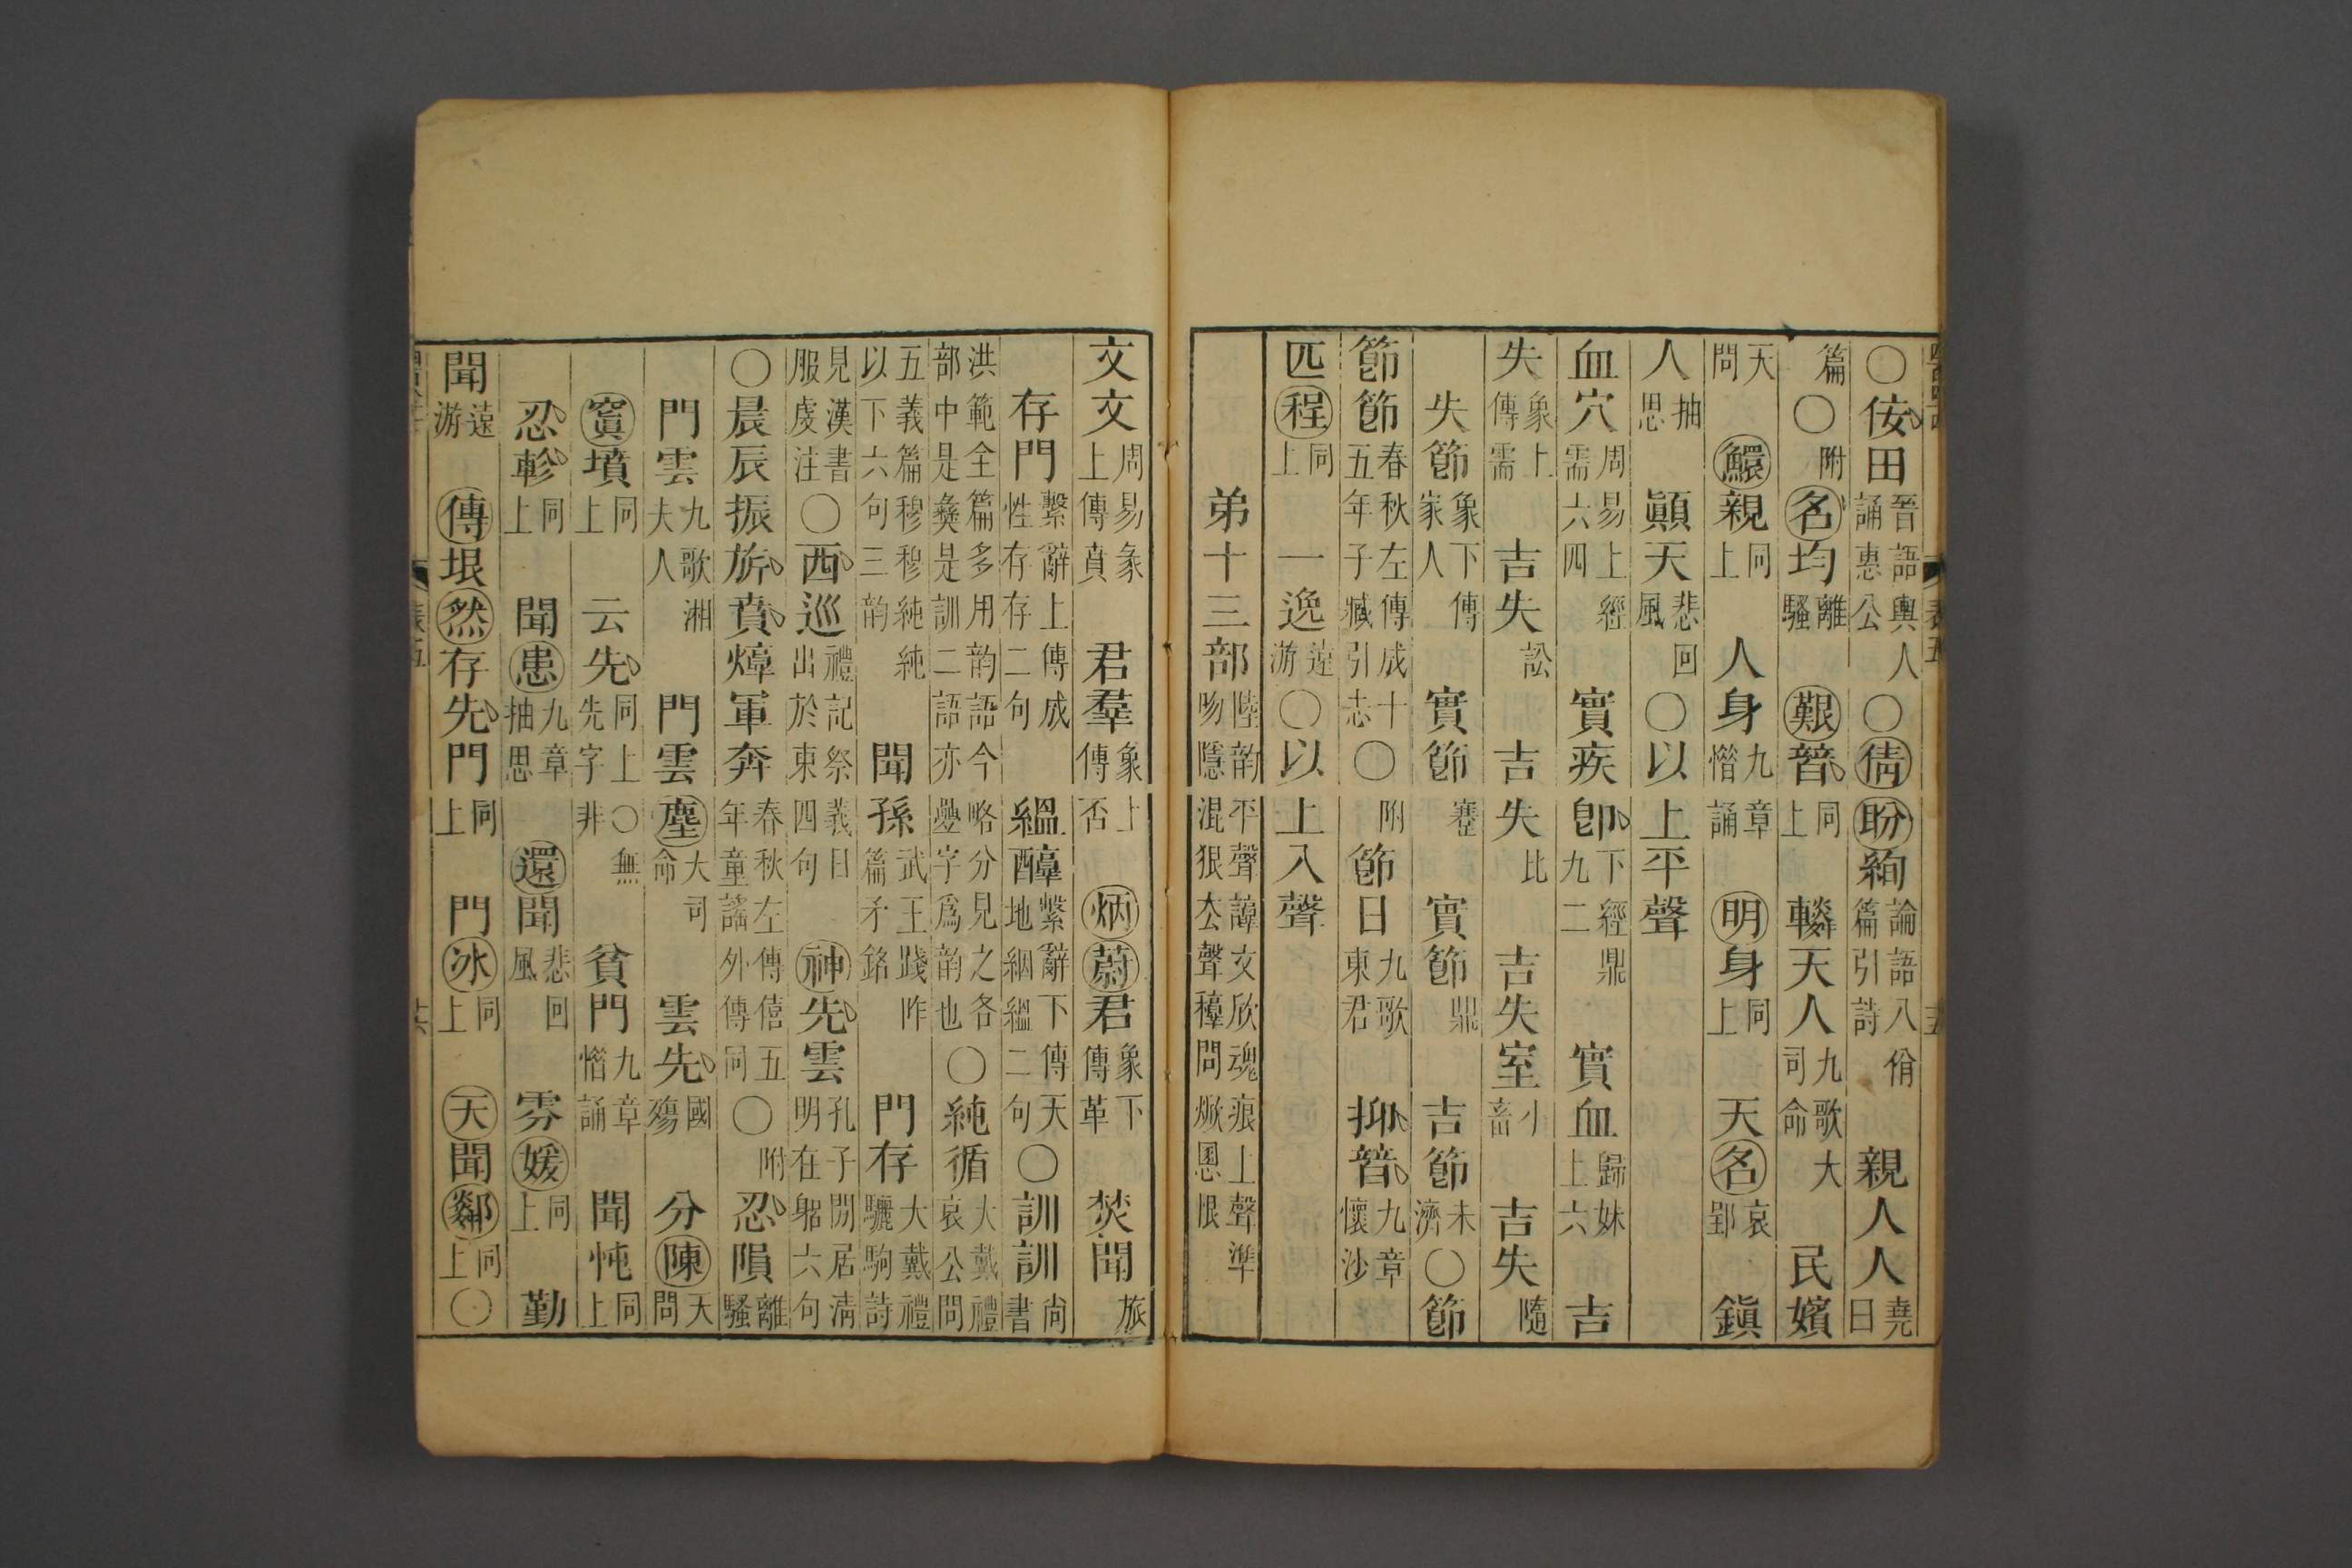 ○佞田晉語輿人誦惠公○倩盼絢論語八佾篇引詩親人人堯曰
篇○附名均離騷艱朁同上轔天人九歌大司命民嬪
天問鰥親同上人身九章惜誦明身同上天名哀郢鎭
人抽思顚天悲回風○以上平聲
血穴周易上經需六四實疾卽下經鼎九二實血歸妹上六吉
失象上傳需吉失訟吉失比吉失室小畜吉失隨
失節象下傳家人實節蹇實節鼎吉節未濟○節
節節春秋左傳成十五年子臧引志○附節日九歌東君抑朁九章懷沙
匹程同上一逸遠游○以上入聲
弟十三部陸韵平聲諄文欣魂痕上聲準吻隱混很去聲稕問焮慁恨
文文周易彖上傳賁君羣象上傳否炳蔚君象下傳革焚聞旅
存門繫辭上傳成性存存二句緼醇繫辭下傳天地絪緼二句○訓訓尚書
洪範全篇多用韵語今略分見之各部中是彝是訓二語亦疊字爲韵也○純循大戴禮哀公問
五義篇穆穆純純以下六句三韵聞孫武王踐阼篇矛銘門存大戴禮驪駒詩
見漢書服虔注○西巡禮記祭義日出於東四句神先雲孔子閒居淸明在躬六句
○晨辰振旂賁焞軍奔春秋左傳僖五年童謠外傳同○附忍隕離騷
門雲九歌湘夫人門雲塵大司命雲先國殤分陳天問
窴墳同上云先同上○無先字非貧門九章惜誦聞忳同上
忍軫同上聞患九章抽思還聞悲回風雰媛同上勤
聞遠游傳垠然存先門同上門冰同上天聞鄰同上○